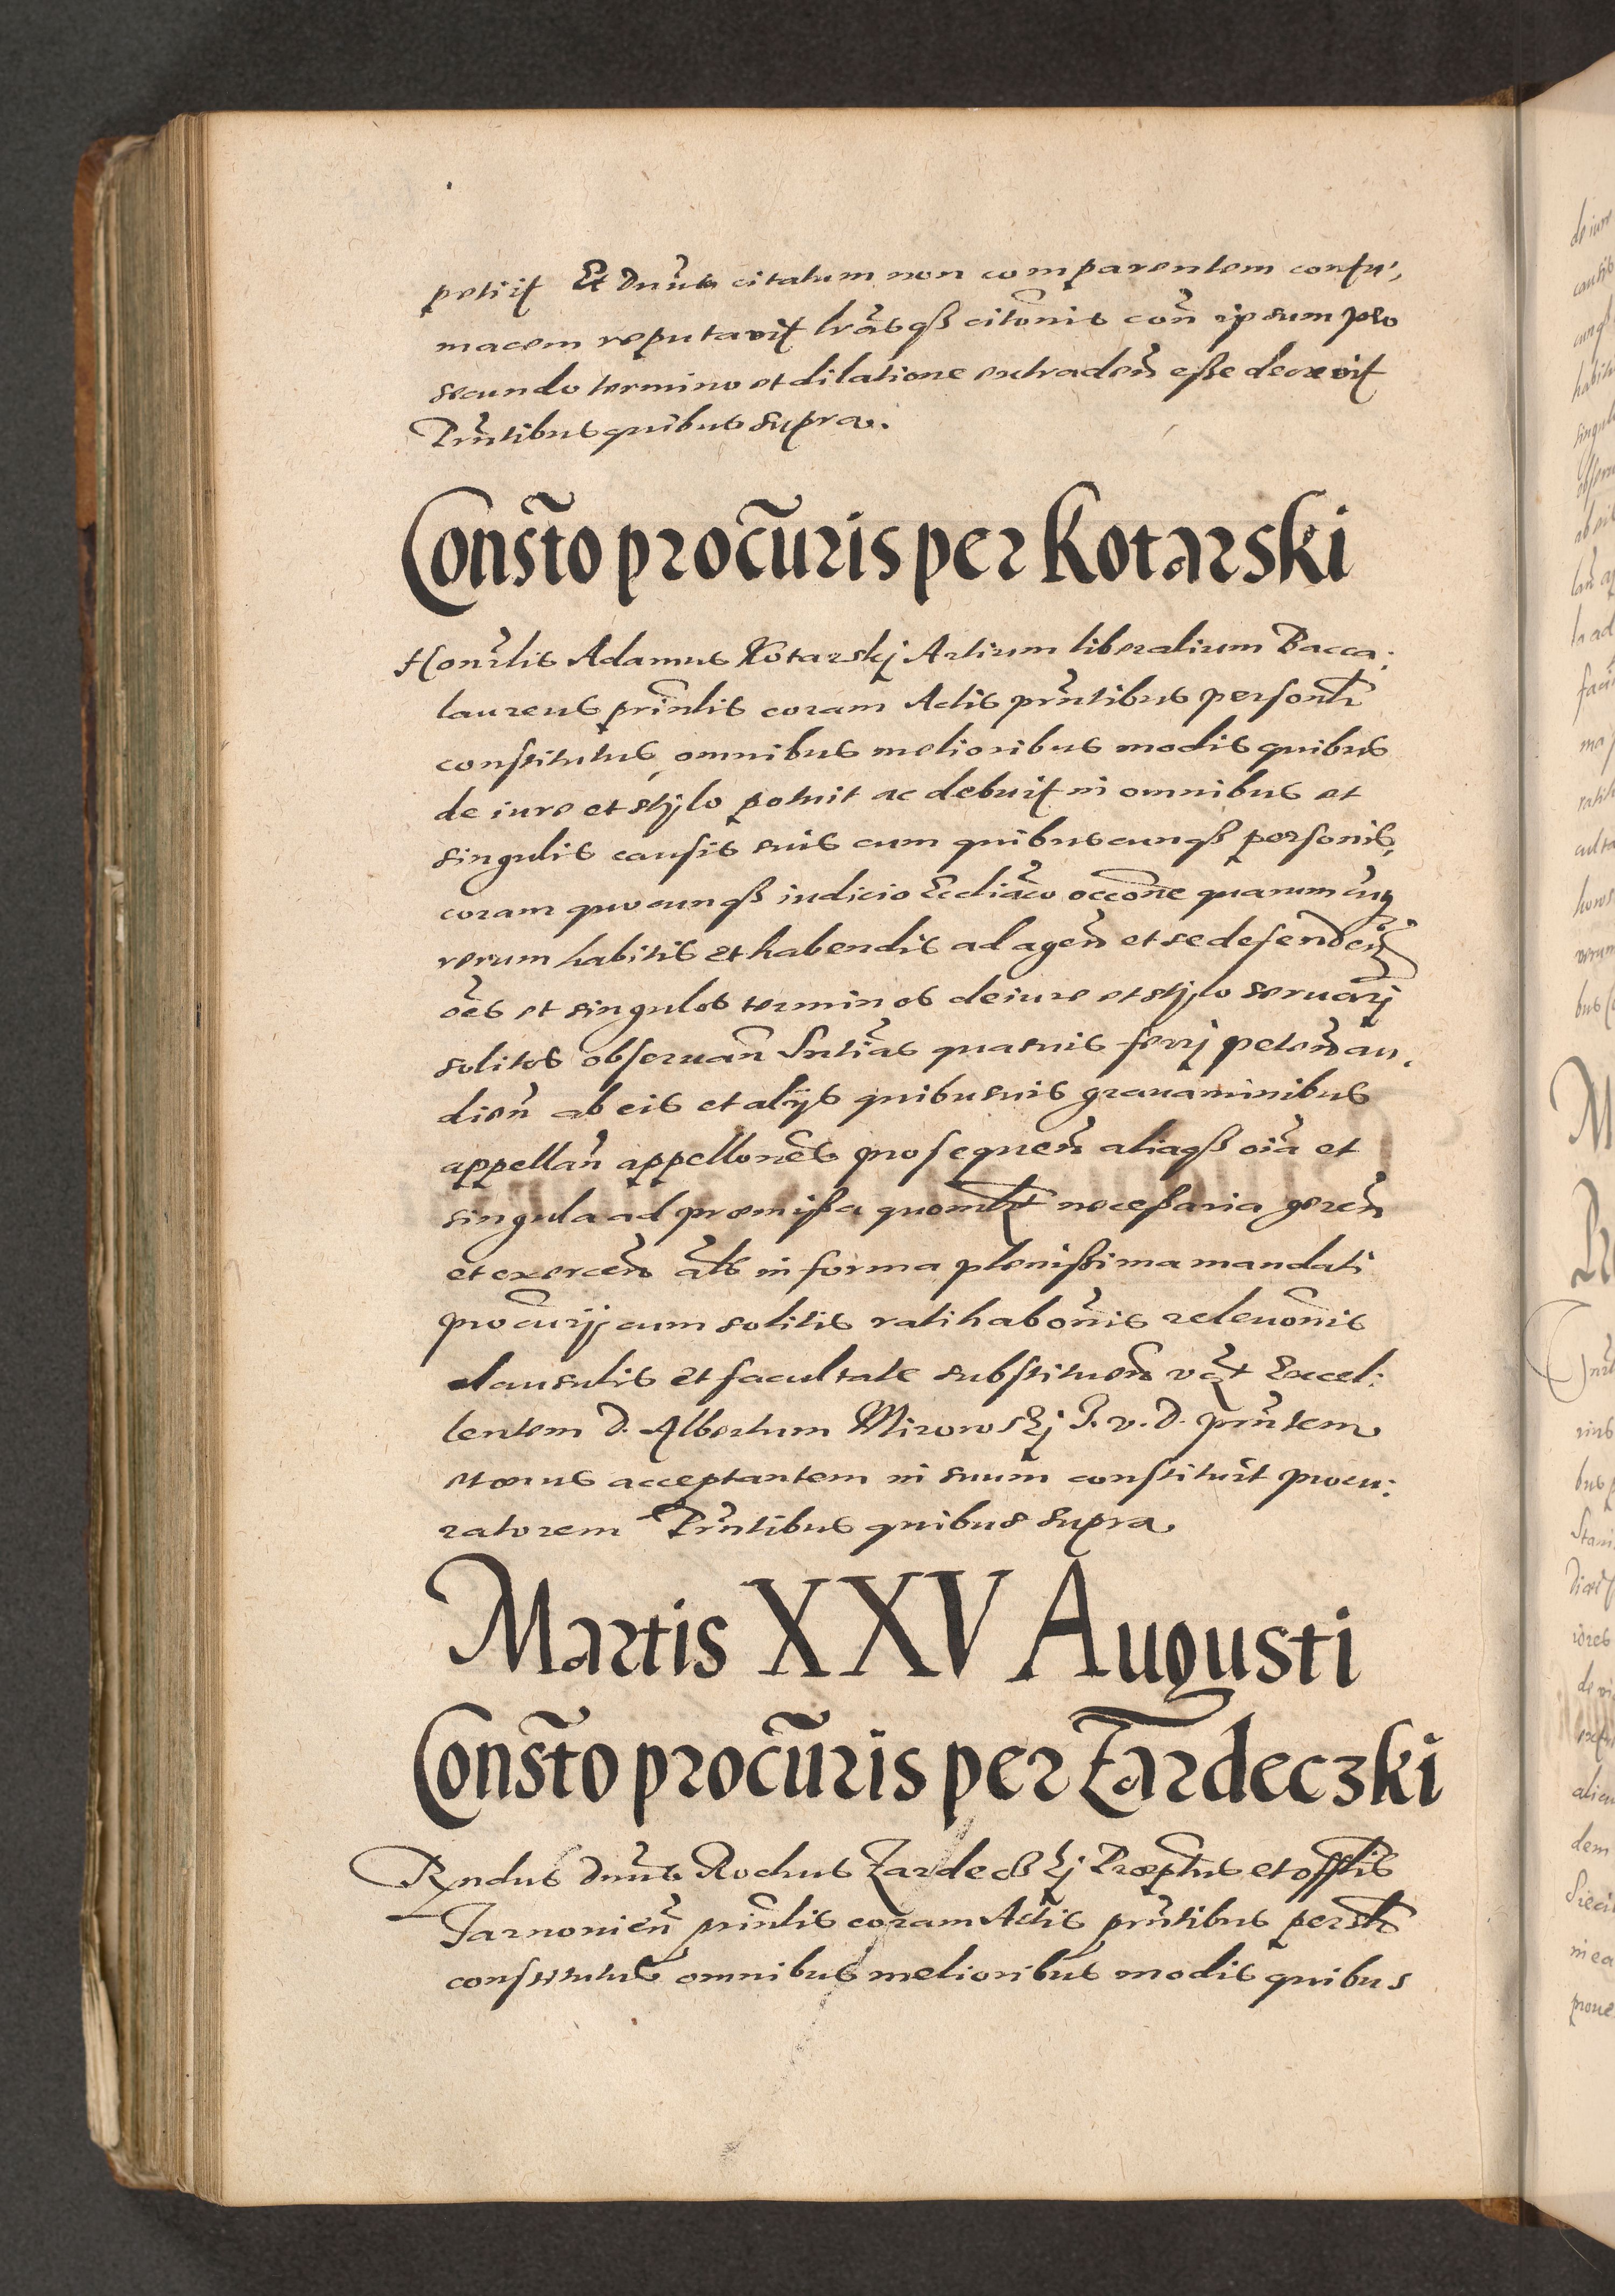 petiit Et Dnus citatum non comparentem contu,
macem reputavit lrasqß citonis con ipsum pro
secundo termino et dilatione extraden eße decrevit
Pnntibus quibus supra.
Consto procuris per Kotarski
Honrlis Adamus Kotarskj Artium liberalium Bacca:
laureus prinlis coram Actis pnntibus personlr
constitutus, omnibus melioribus modis quibus
de iure et stylo potuit ac debuit in omnibus et
singulis causis suis cum quibuscunqß personis,
coram quocunqß iudicio Eccliaco occone quarumcuq
rerum habitis et habendis ad agen et se defenden
oes et singulos terminos de iure et stylo servarj
solitos observan Sntias quasuis ferrj peten au,
dien ab eis et alijs quibusuis gravaminibus
appellan appellones prosequen aliaqß oia et
singula ad præmißa quomlt neceßaria geren
et exercen als in forma plenißima mandati
procurij cum solitis ratihabonis relevonis
clausulis et facultate substituen vcz Excel:
lentem D. Albertum Mirowskj J. v. D. pnntem
et onus acceptantem in suum constituit procu:
ratorem Pnntibus quibus supra
Martis XXV Augusti
Consto procuris per Zardeczki
Rndus dnus Rochus Zardeczkj Præptus et offlis
Tarnovien prinlis coram Actis pnntibus perslr
constitutus omnibus melioribus modis quibus